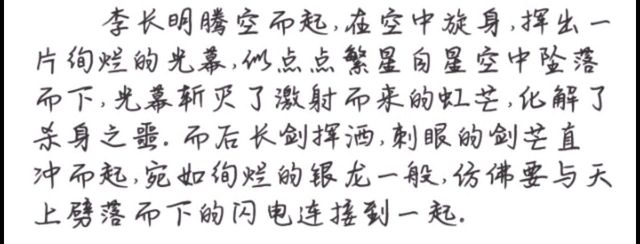 李长明腾空而起,在空中旋身,挥出一
片绚烂的光幕,似点点繁星自星空中坠落
而下,光幕斩灭了激射而来的虹芒,化解了
杀身之噩.而后长剑挥洒,刺眼的剑芒直
冲而起,宛如绚烂的银龙一般,仿佛要与天
上劈落而下的闪电连接到一起.